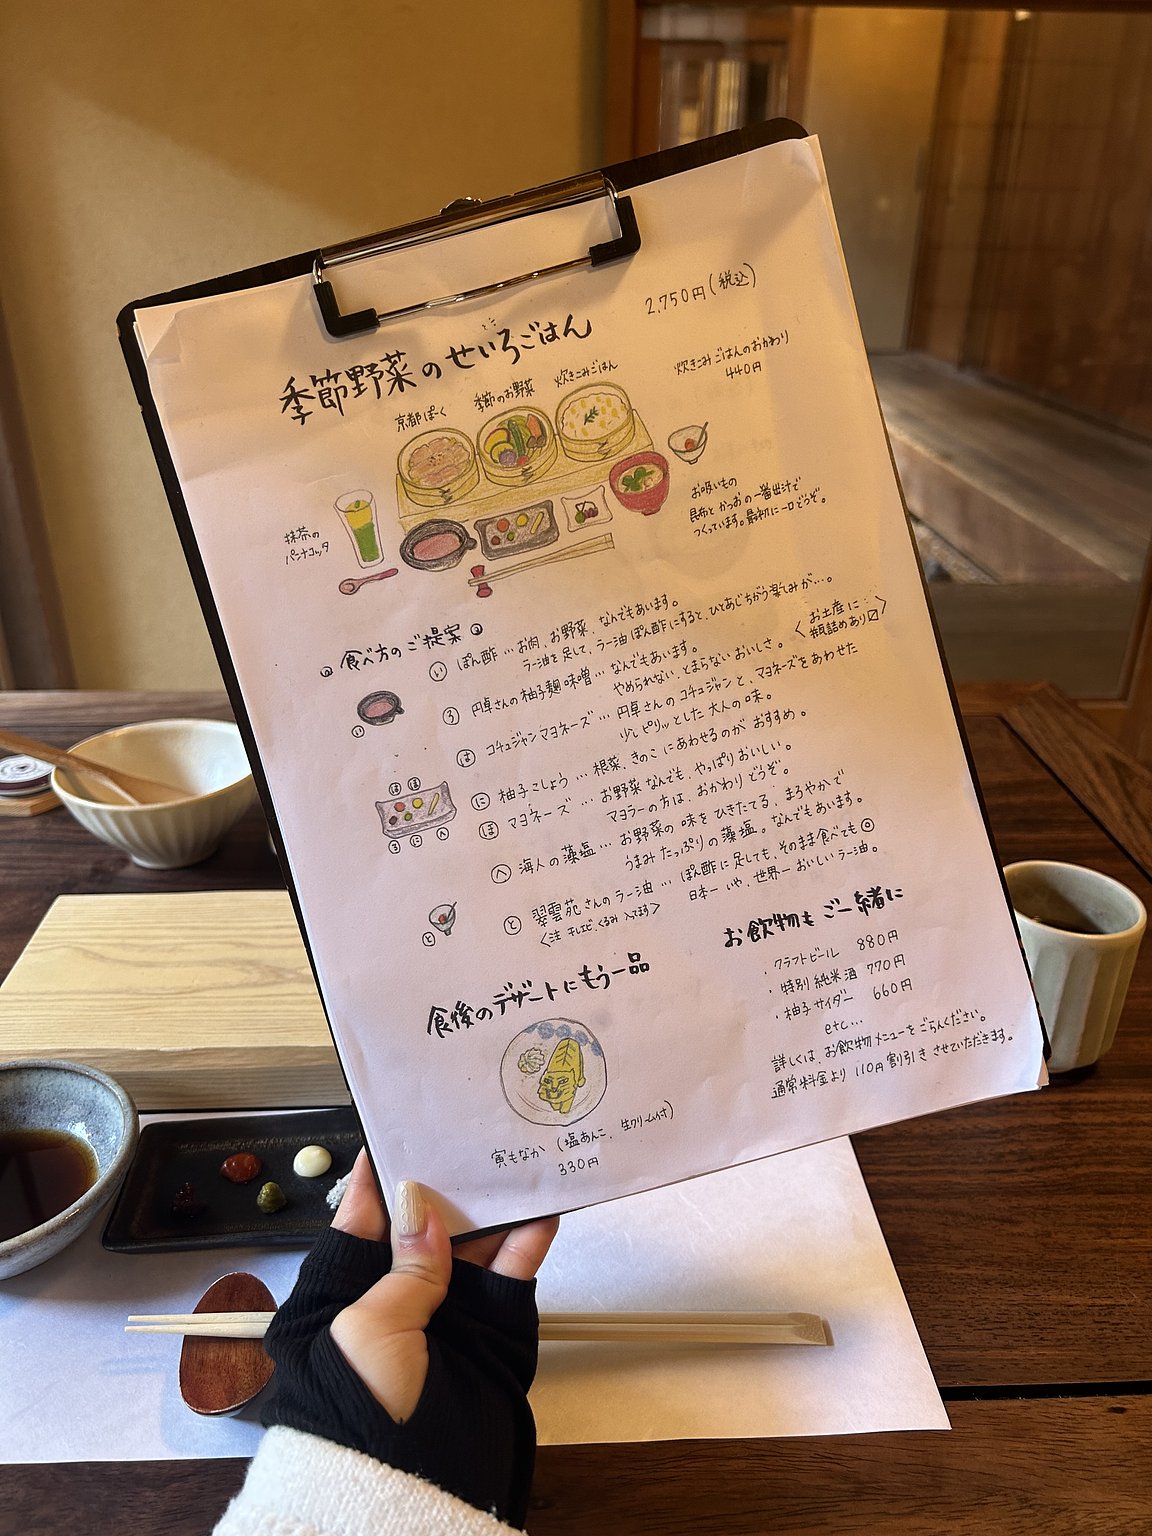 2,750円(税込)
季節野菜のせいろごはん
炊きこみごはんのおかわり
440円
京都ぽーく
季節のお野菜
炊きこみごはん
抹茶の
パンナコッタ
お吸いもの
昆布とかつおの一番出汁で
つくっています。最初に一口どうぞ。
食べ方のご提案
い ぽん酢…お肉、お野菜、なんでもあいます。
ラー油を足して、ラー油ぽん酢にすると、ひとあじちがう楽しみが…。
ろ 円卓さんの柚子麹味噌…なんでもあいます。
やめられない、とまらないおいしさ。
<お土産に
瓶詰めあり〼>
は コチュジャンマヨネーズ…円卓さんのコチュジャンと、マヨネーズをあわせた
少しピリッとした大人の味。
に 柚子こしょう…根菜、きのこにあわせるのがおすすめ。
ほ マヨネーズ…お野菜なんでも、やっぱりおいしい。
マヨラーの方は、おかわりどうぞ。
へ 海人の藻塩…お野菜の味をひきたてる、まろやかで
うまみたっぷりの藻塩。なんでもあいます。
と 翠雲苑さんのラー油…ぽん酢に足しても、そのまま食べても◎
<注 干しエビ、くるみ入ってます>
日本一、いや、世界一おいしいラー油。
い
は ほ
ろ に へ
と
食後のデザートにもう一品
寅もなか(塩あんこ、生クリーム付)
330円
お飲物もご一緒に
・クラフトビール 880円
・特別純米酒 770円
・柚子サイダー 660円
etc…
詳しくはお飲物メニューをごらんください。
通常料金より110円割引きさせていただきます。